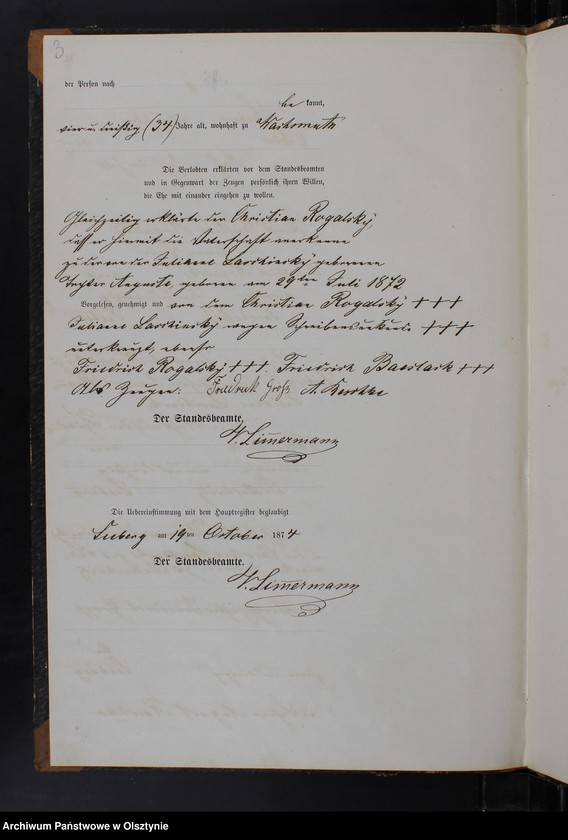 3
der Person nach
be kannt,
vier u. dreißig (34) Jahre alt, wohnhaft zu
Die Verlobten erklärten vor dem Standesbeamten
und in Gegenwart der Zeugen persönlich ihren Willen,
die Ehe mit einander eingehen zu wollen.
Gleichzeitig erklärte der Christian Rogalsky,
daß er hiermit die Vaterschaft anerkenne
zu der von der Juliane geborenen
Tochter Auguste, geboren am 29ten Juli 1872
Vorgelesen, genehmigt und von dem Christian Rogalsky +++
Juliane wegen Schreibensunkunde +++
unterkreuzt, ebenso
Friedrich Rogalsky +++. Friedrich +++
Als Zeugen: Friedrich Groß A.
Der Standesbeamte,
Limermann
Die Uebereinstimmung mit dem Hauptregister beglaubigt
Seeberg am 19ten October 1874
Der Standesbeamte.
Limermann
Archiwum Państwowe w Olsztynie